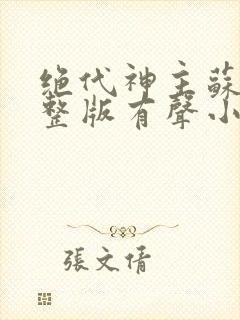 绝代神主蘇
整版有聲小
張文倩